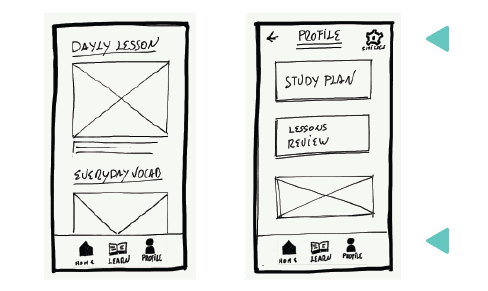 DAYLY LESSON
EVERYDAY VOCAB
HOME LEARN PROFILE
PROFILE
SETTINGS
STUDY PLAN
LESSONS
REVIEW
HOME LEARN PROFILE